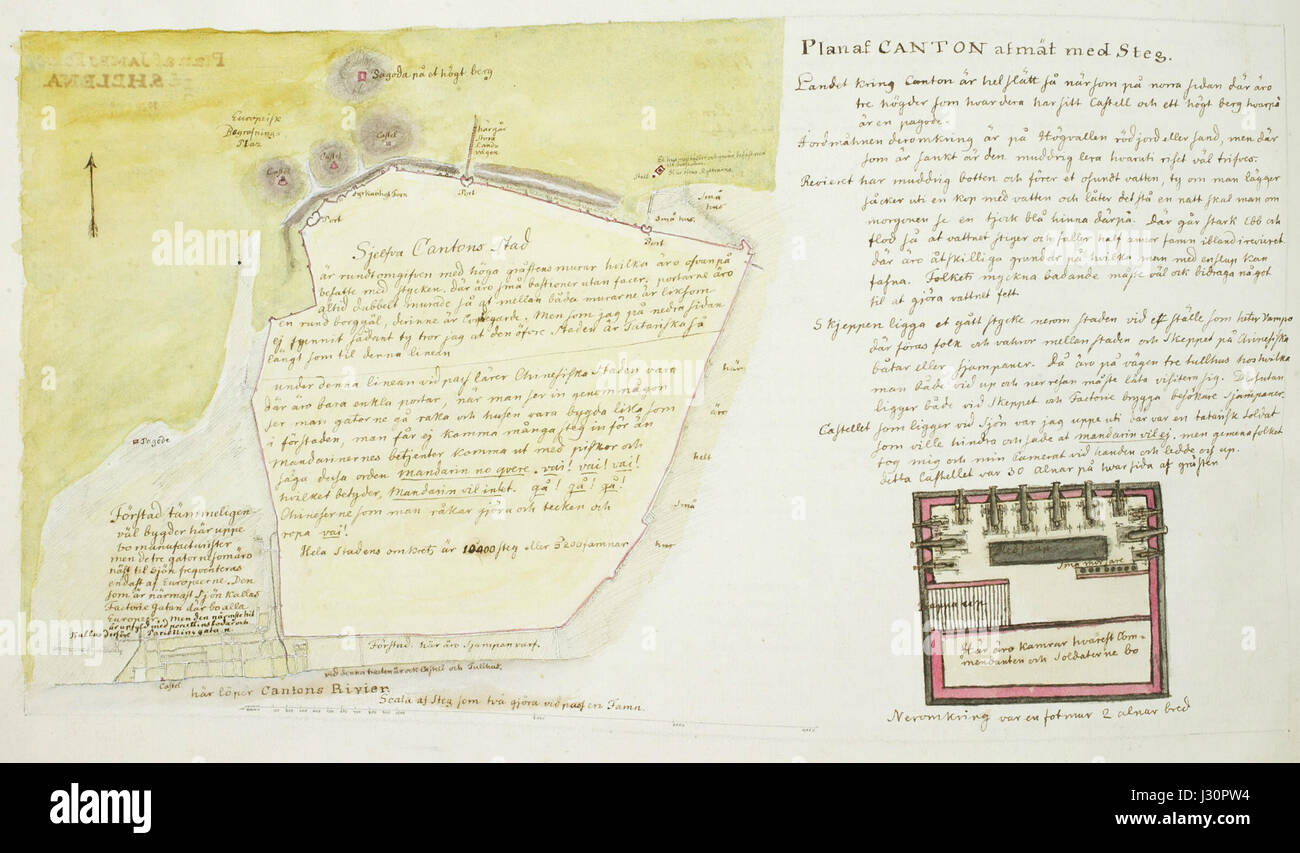 Plan af CANTON afmät med Steg.
Landet kring Canton är hel slätt så när som på norra sidan där äro
tre högder som hvardera har sitt Castell och ett högt berg hvarpå
är en pagode.
Jordmåhnen deromkring är på Högvallen röd jord eller sand, men där
som är sankt är den muddrig lera hvaruti riset väl trifves.
Revieret har muddrig botten och förer et osundt vatten, ty om man lägger
såcker uti en kop med vatten och låter det stå en natt skal man om
morgonen se en tjock blå hinna därpå. Där går stark Ebb och
flod så at vattnet stiger och faller half annor famn ibland
där äro åtskilliga grunder på hvilka man med en stup kan
Folkets myckna badande måste väl ock bidraga något
til at gjöra vattnet fett.
Skjeppen ligga et gått stycke nerom staden vid ett ställe som heter Vampo
där föras folk och vahror mellan staden och Skeppet på Chinesiska
båtar eller sjampaner. Då äro på vägen tre tullhus hos hvilka
man både vid up och ner resan måste låta visitera sig. Desutan
ligger både vid Skeppet och Factorie brygga besökare sjampaner.
Castellet som ligger vid Sjön var jag uppe uti där var en tatarisk soldat
som ville hindra och sade at mandarin vil ej. men gemena folket
tog mig och min Camerat vid handen och ledde oss up.
detta Castellet var 30 alnar på hvar sida af gråsten
Små mörsare
Trappa up
Här äro kamrar hvarest Com-
mendanten och Soldaterne bo
Neromkring var en fotmur 2 alnar bred
Plan af
S. HELENA
Pagoda på et högt berg
Europeisk
Begrafnings-
Plaz
Castel
Castel
Castel
här går
Stora
Lands-
vägen
Port
Port
Port
Små hus
Små
hus
Sjelfva Cantons Stad
är rundt omgifven med höga gråstens murar hvilka äro ofvan på
besatte med stycken. där äro små bastioner utan facer, portarne äro
altid dubbelt murade så at mellan båda murarne är liksom
en rund borggål, derinne är Corps de garde. Men som jag på nedra sidan
ej funnit sådant ty tror jag at den öfre Staden är Tatarska så
långt som til denna linean
under denna linean vid pass lärer Chinesiska Staden vara
där äro bara enkla portar, när man ser in genom någon
ser man gatorne gå raka och husen vara bygda lika som
i förstaden, man får ej komma många steg in för än
Mandarinernes betjenter komma ut med piskor och
säga dessa orden Mandarin no qvere. vai! vai! vai!
hvilket betyder, Mandarin vil intet. gå! gå! gå!
Chineserne som man råkar gjöra och tecken och
ropa vai!
Hela Stadens omkrets är 10400 steg eller 5200 famnar
här
äro
helt
Små
hus
Pagode
Förstad tämmeligen
väl bygder här uppe
bo manufacturister
men de tre gator som äro
näst til sjön freqventeras
endast af Europeerne. Den
som är närmast Sjön kallas
Factorie gatan där bo alla
Europeer. Men den närmste hit
är upfyld med porcellins bodar och
kallas derföre Porcellins gatan
Castel
Förstad. här äro Sjampan varf.
vid denna trakten är ock Castell och Tullhus.
här löper Cantons Rivier
Scala af Steg som två gjöra vid pass en Famn
alamy
alamy
Image ID: J30PW4
www.alamy.com